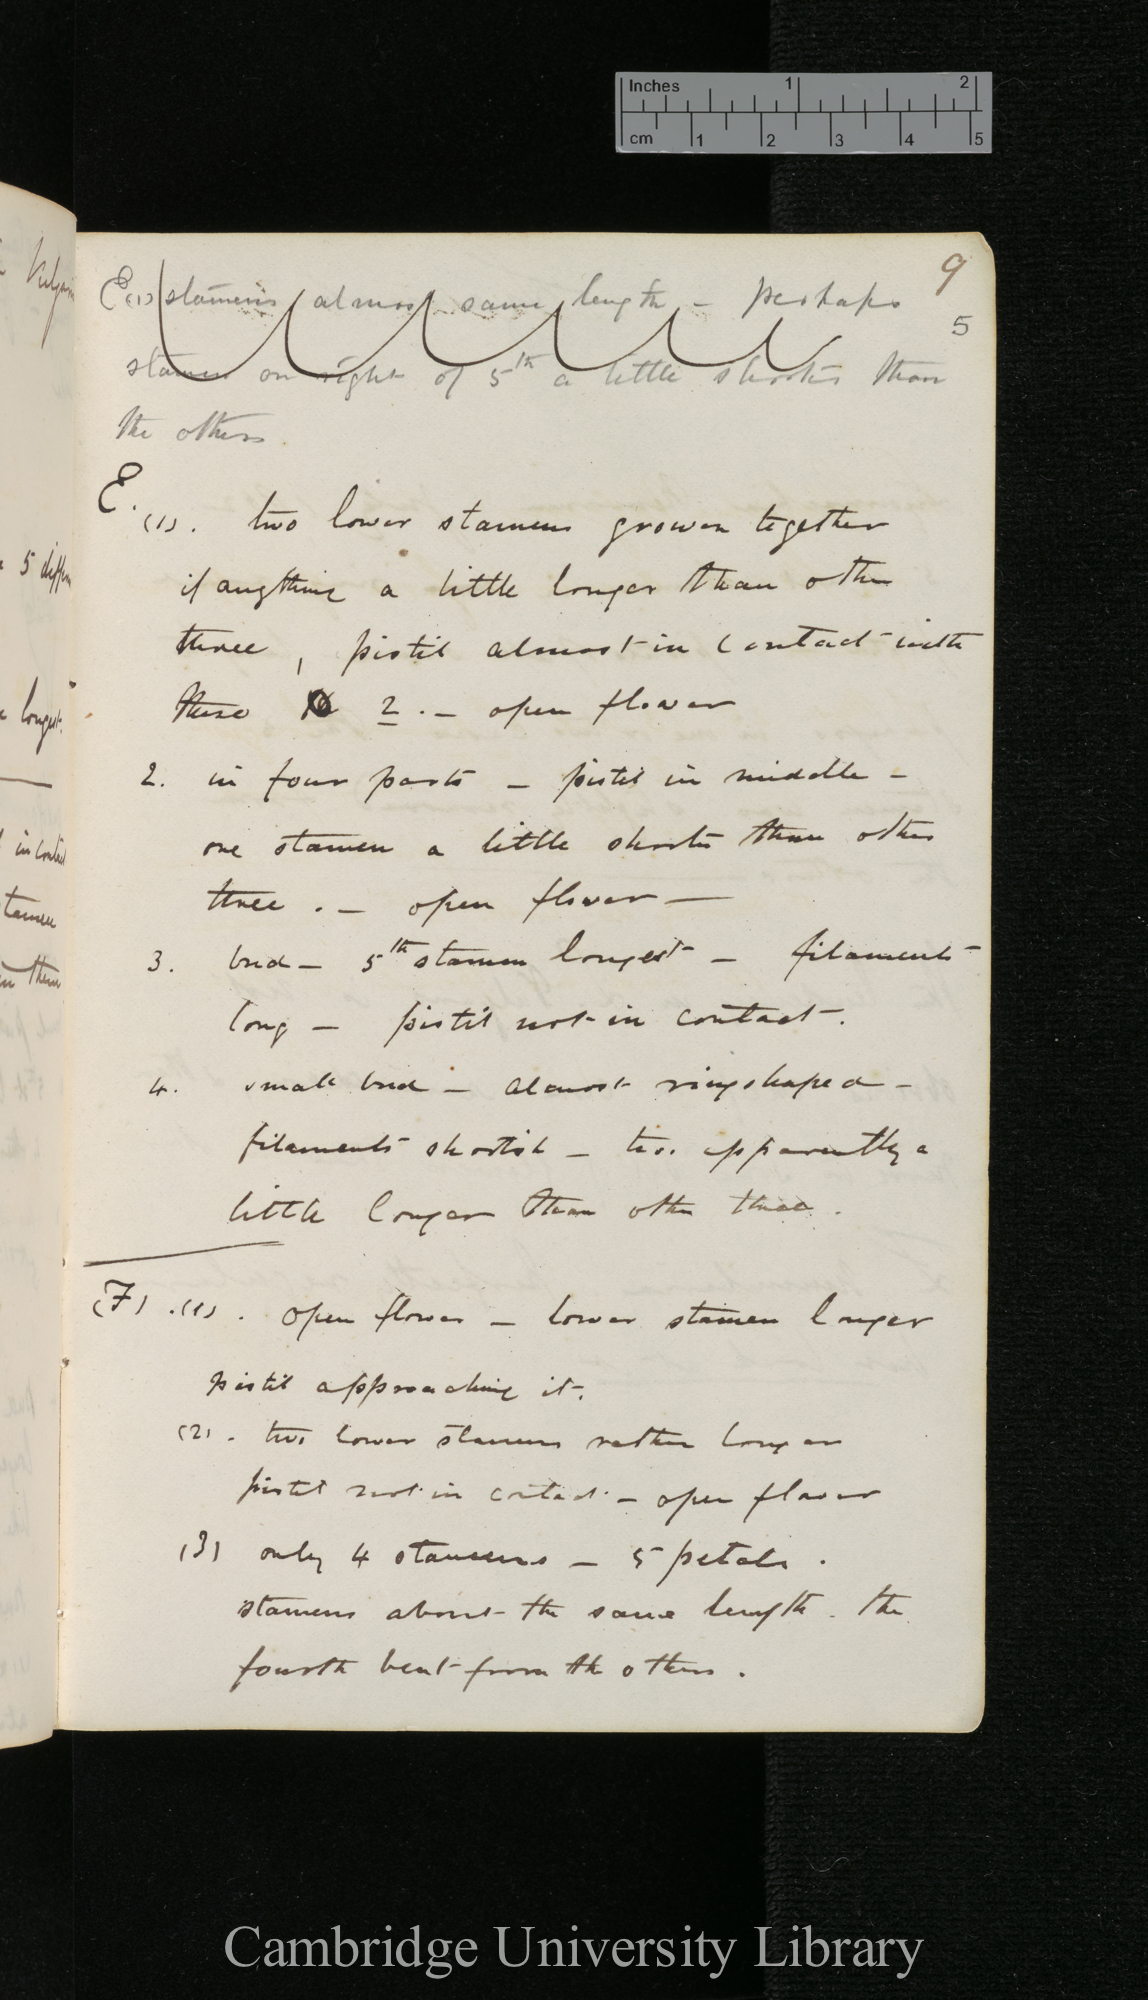 Inches 1 2
cm 1 2 3 4 5
9
5
E (1) stamens almost same length – perhaps
stamen on right of 5th a little shorter than
the others.
E.
(1). two lower stamens grown together
if anything a little longer than other
three, pistil almost in contact with
these 2. – open flower
2. in four parts – pistil in middle –
one stamen a little shorter than other
three. – open flower –
3. bud – 5th stamen longest – filaments
long – pistil not in contact.
4. small bud – almost ringshaped –
filaments shortish – two apparently a
little longer than other three.
(F) .(1). open flower – lower stamen longer
pistil approaching it.
(2). two lower stamens rather longer
pistil not in contact – open flower
(3) only 4 stamens – 5 petals.
stamens about the same length. the
fourth bent from the others.
5 differ
longest.
in contact
stamen
them
Cambridge University Library